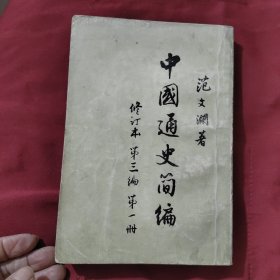 范文瀾著
中國通史简编
修訂本 第三編 第一册